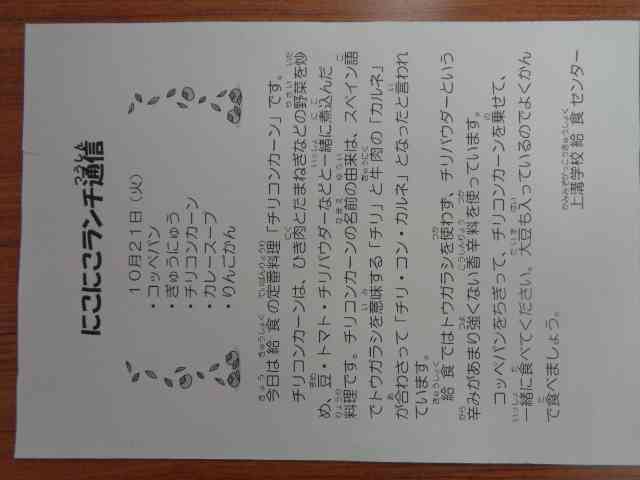 にこにこランチ通信
10月21日（火）
・コッペパン
・ぎゅうにゅう
・チリコンカーン
・カレースープ
・りんごかん
今日は給食の定番料理「チリコンカーン」です。
チリコンカーンは、ひき肉とたまねぎなどの野菜を炒
め、豆・トマト・チリパウダーなどと一緒に煮込んだ
料理です。チリコンカーンの名前の由来は、スペイン語
でトウガラシを意味する「チリ」と牛肉の「カルネ」
が合わさって「チリ・コン・カルネ」となったと言われ
ています。
給食ではトウガラシを使わず、チリパウダーという
辛みがあまり強くない香辛料を使っています。
コッペパンをちぎって、チリコンカーンを乗せて、
一緒に食べてください。大豆も入っているのでよくかん
で食べましょう。
上溝学校給食センター